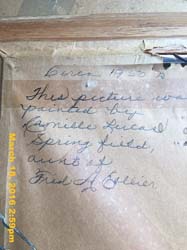 Circa 1950's
This picture was
painted by
Camille Lucas
Springfield,
aunt of
Fred A. Collier
March 10, 2016 2:59pm